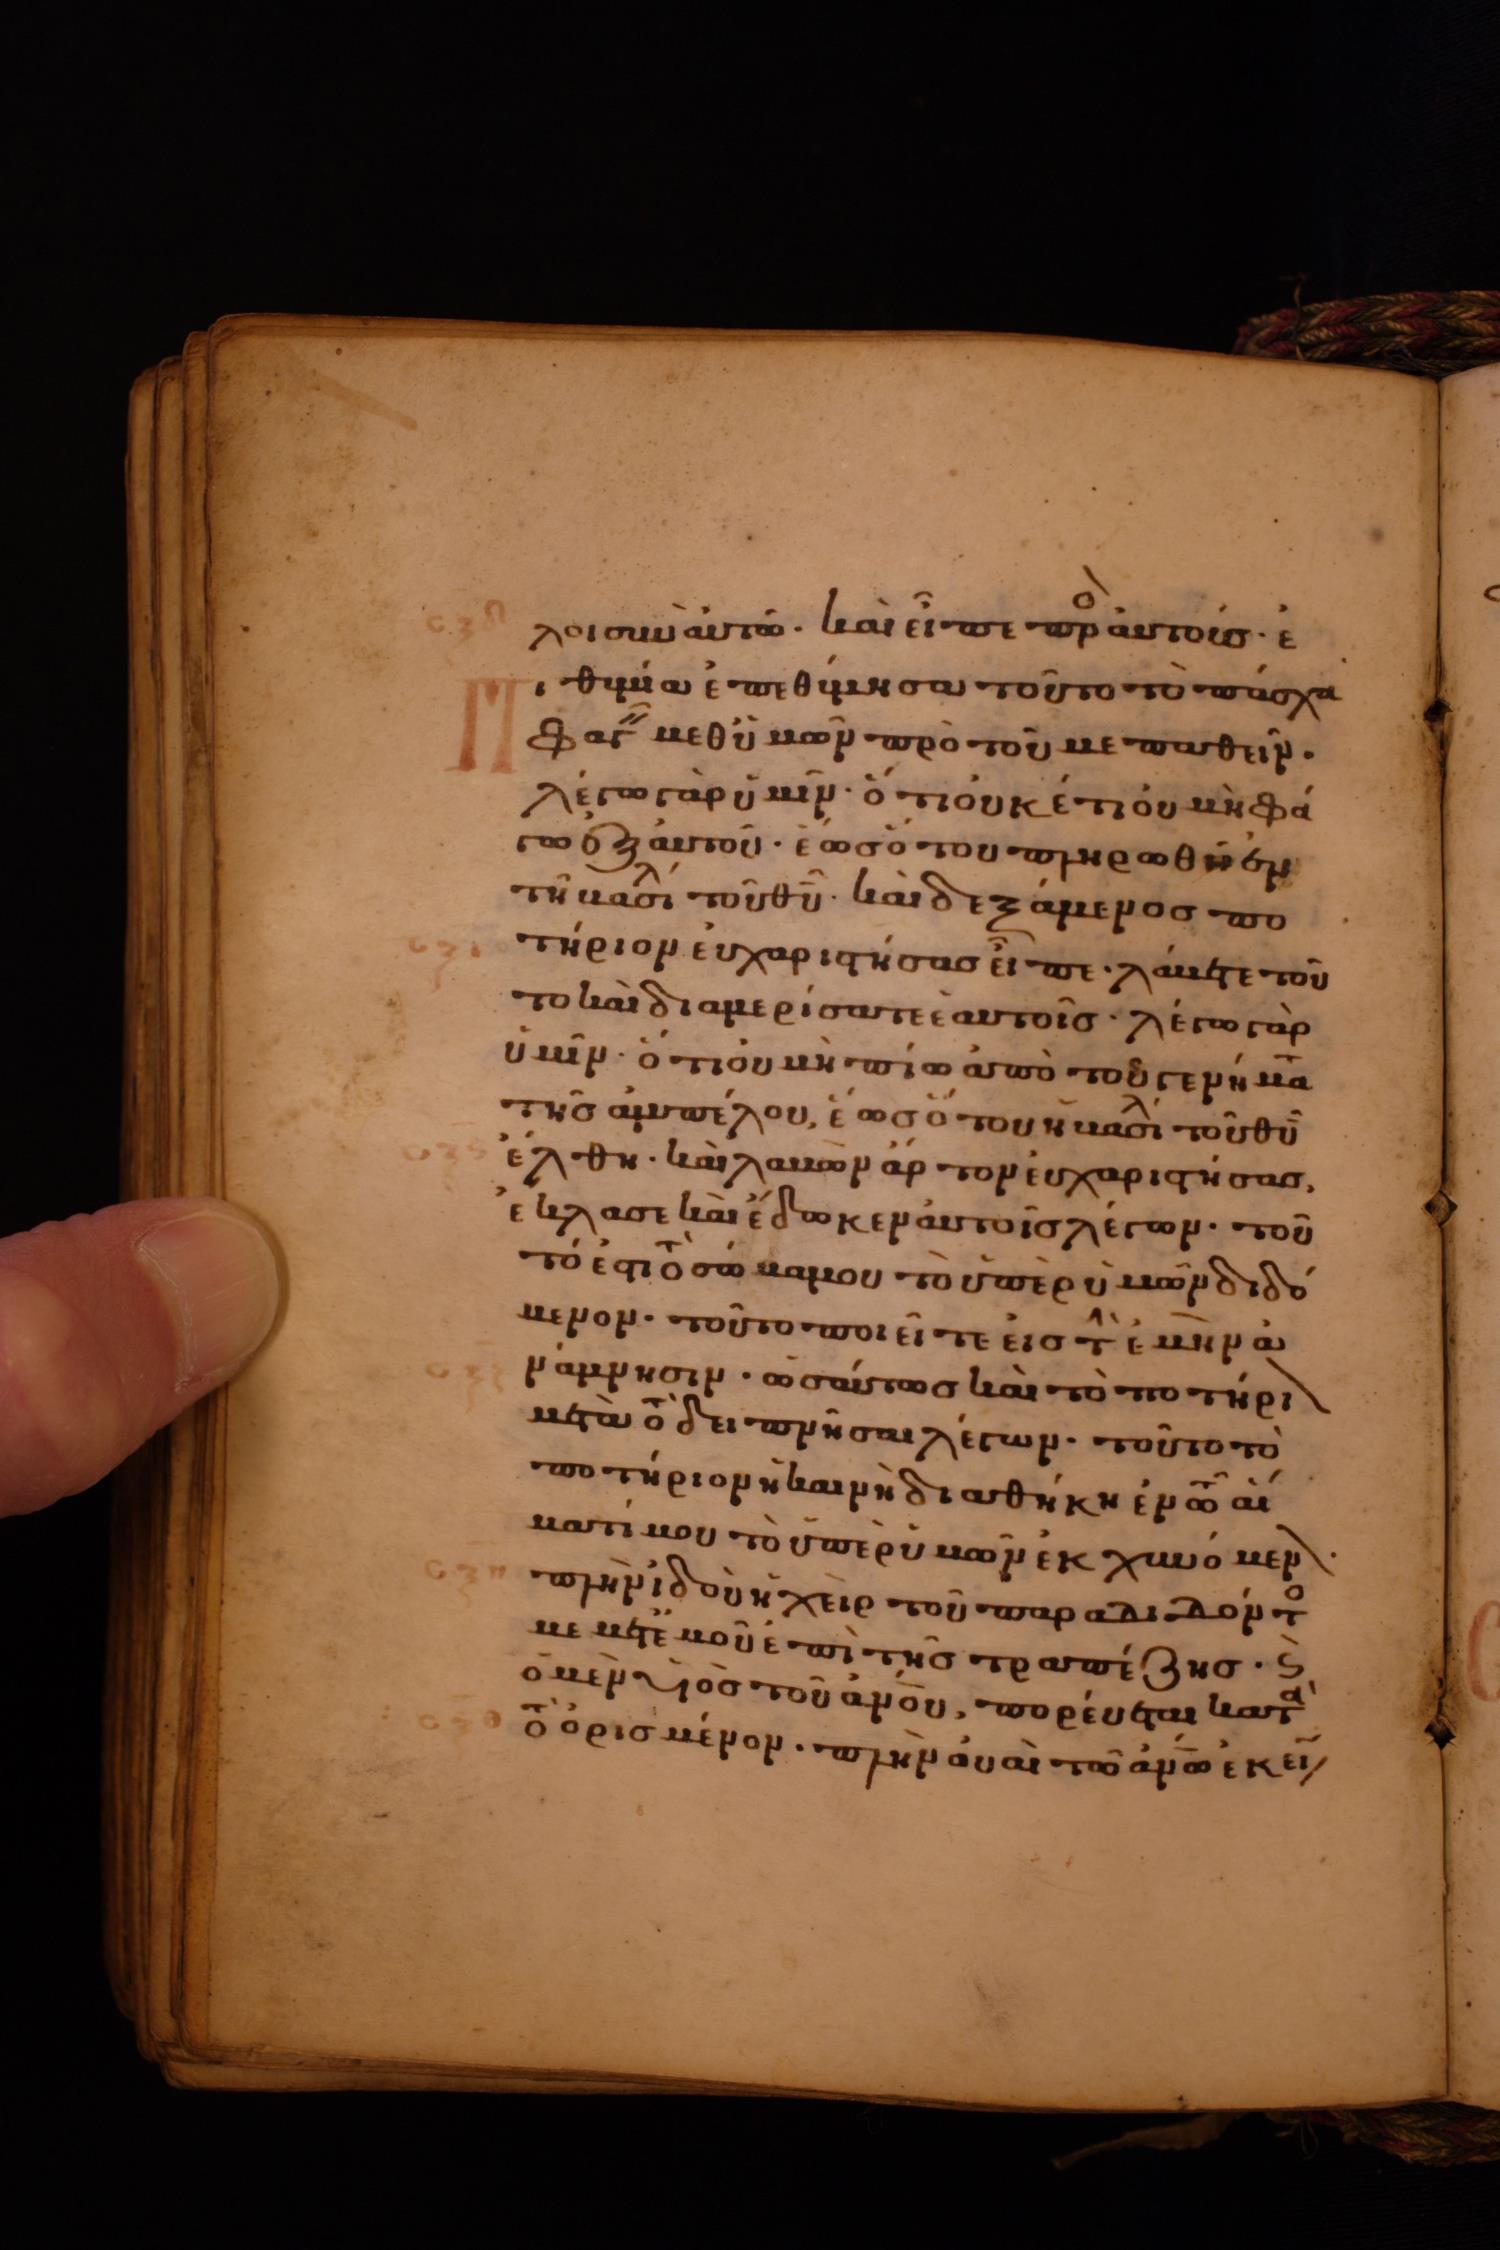 λοι σὺν αὐτῶ· καὶ εἶπε πρὸ αὐτοίς· ἐ
Πιθυμία ἐπεθύμησα τοῦτο τὸ πάσχα
φαγ μεθ ὑμῶν πρὸ τοῦ με παθεῖν·
λέγω γὰρ ὑμῖν· ὅτι οὐκέτι οὐ μὴ φά
γω ἐξ αὐτοῦ· ἕως ὅτου πληρωθῆ ἐν
τῆ βασλι τοῦ θῦ· καὶ δεξάμενος πο
τήριον εὐχαριστήσας εἶπε· λάβετε τοῦ
το καὶ διαμερίσατε ἑαυτοῖς· λέγω γὰρ
ὑμῖν· ὅτι οὐ μὴ πίω ἀπὸ τοῦ γενήμα
τῆς ἀμπέλου, ἕως ὅτου ἡ βασλι τοῦ θῦ
ἔλθη· καὶ λαβὼν ἄρτον εὐχαριστήσας,
ἔκλασε καὶ ἔδωκεν αὐτοῖς λέγων· τοῦ
τό ἐστι τὸ σώμα μου τὸ ὑπὲρ ὑμῶν διδό
μενον· τοῦτο ποιεῖτε εἰς τ ἐμὴν ἀ
νάμνησιν· ὡσάυτως καὶ τὸ ποτήρι
μετὰ τὸ δειπνῆσαι λέγων· τοῦτο τὸ
ποτήριον ἡ καινὴ διαθήκη ἐν τῶ αἵ
ματί μου τὸ ὑπὲρ ὑμῶν ἐκχυνόμεν·
πλὴν ἰδοὺ ἡ χεὶρ τοῦ παραδιδόντο
με μετ ἐμοῦ ἐπὶ τῆς τραπέζης· ϗ
ὁ μὲν υἱὸς τοῦ ἀνου, πορέυεται κατα
τὸ ὁρισμένον· πλὴν οὐαὶ τῶ ἀνω ἐκεί
σξδ
σξϛ
σξζ
σξη
σξθ